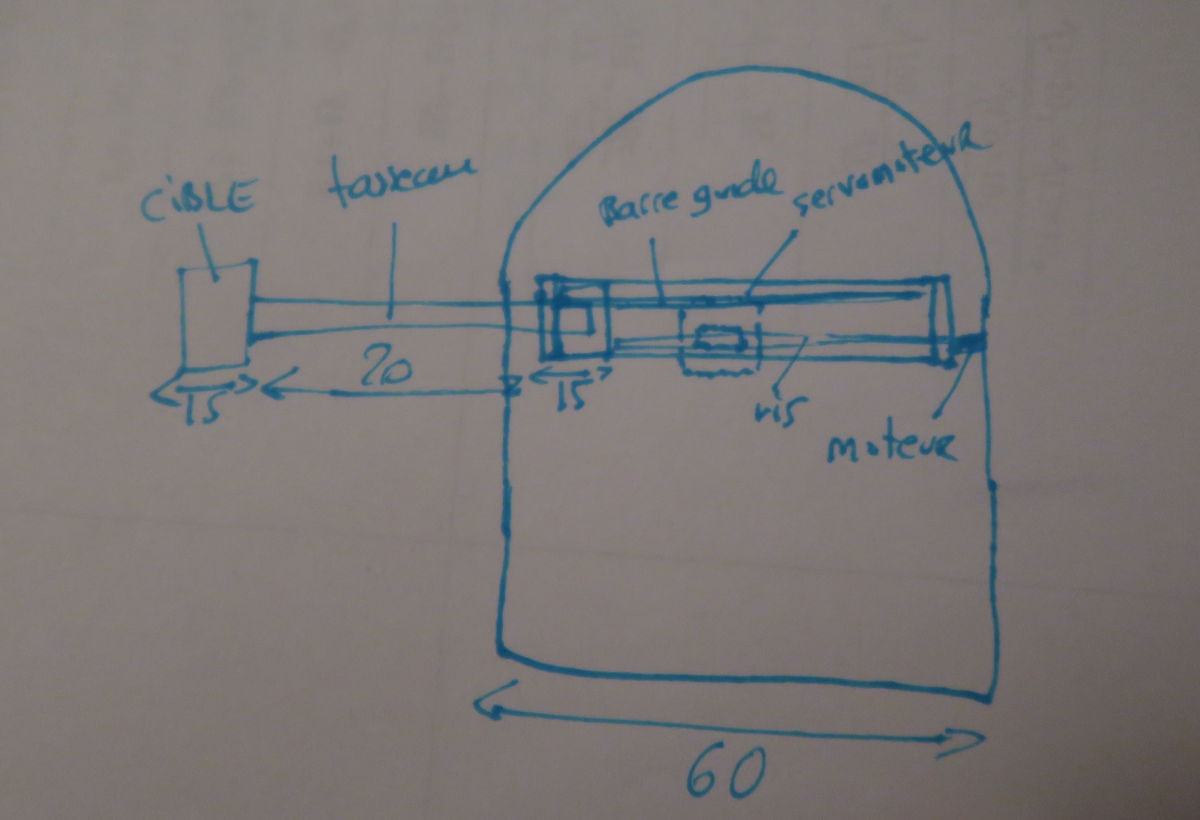 CiBLE
tasseau
Barre guide
servomoteur
20
15
15
vis
moteur
60